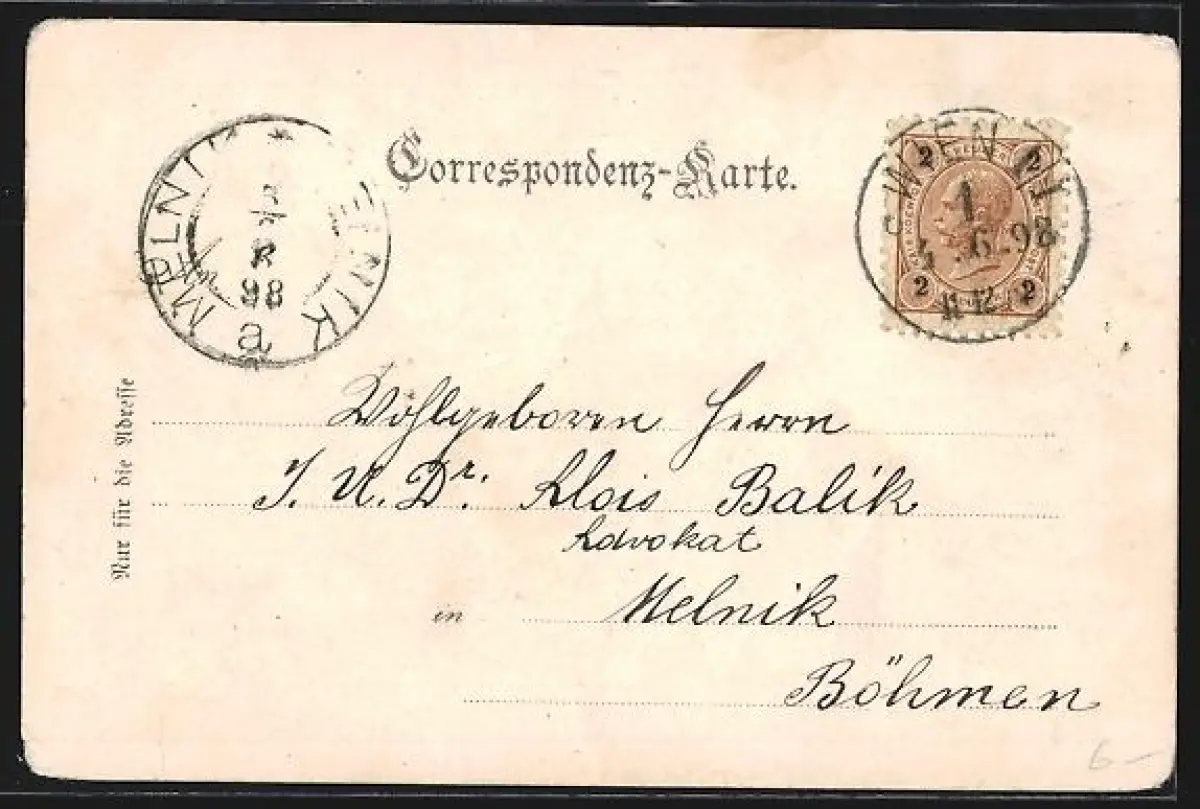 Correspondenz-Karte.
MĚLNÍK * MELNIK
98
a
WIEN
1
4 .6.98
2 2
2 2
Nur für die Adresse
Wohlgeboren Herrn
J. U. Dr. Alois Balík
Advokat
in Melnik
Böhmen
6-